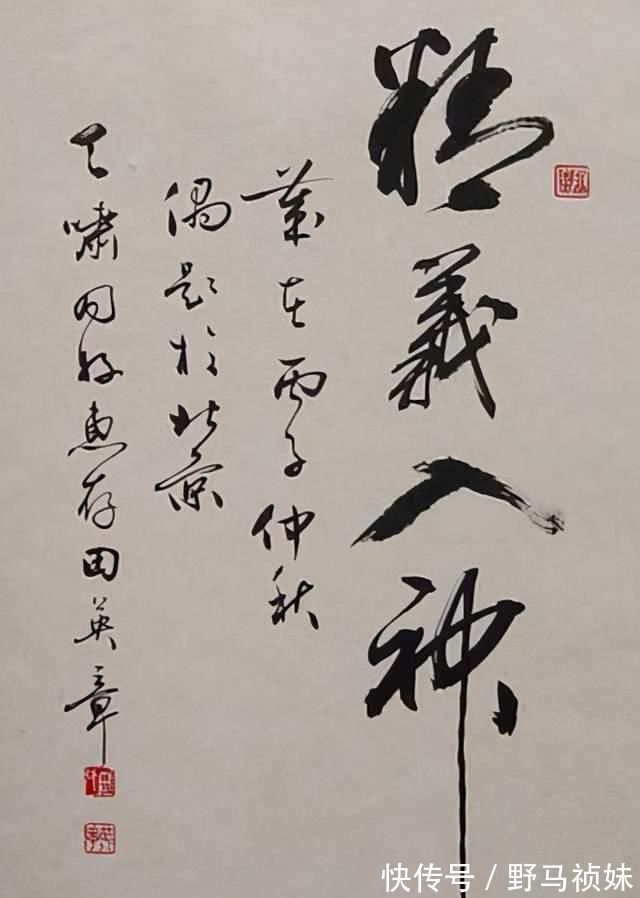 精義入神
歲在丙子仲秋
偶題於北京
嘯同好惠存田英章
快传号/野马祯妹